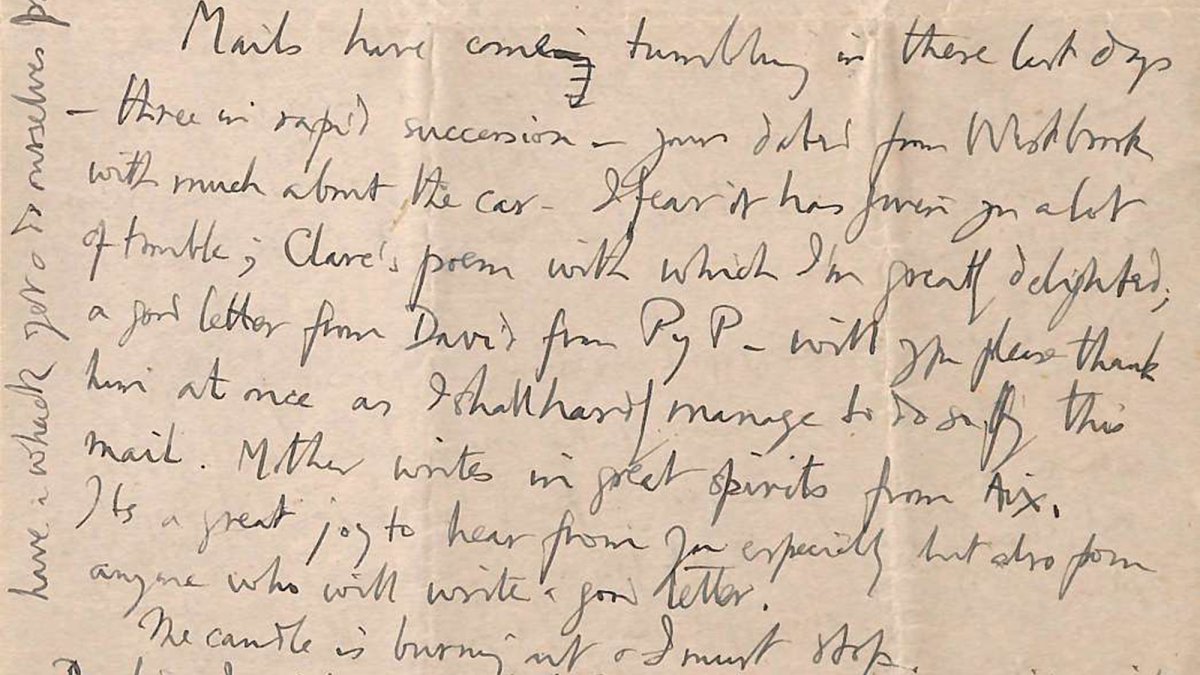 Mails have come tumbling in these last days
– three in rapid succession – yours dated from Westbrook
with much about the car – I fear it has given you a lot
of trouble; Clare's poem with which I'm greatly delighted;
a good letter from David from P y P – will you please thank
him at once as I shall hardly manage to do so by this
mail. Mother writes in great spirits from Aix.
Its a great joy to hear from you especially but also from
anyone who will write a good letter.
The candle is burning out & I must stop.
have a whack get a to ourselves